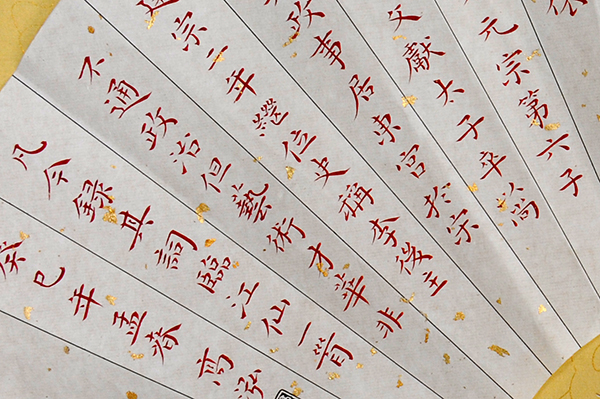 元宗第六子
文獻太子卒以尚
政事居東宮於宋
宗二年繼位史稱李後主
不通政治但藝術才華非
凡今錄其詞臨江仙一首
癸巳年孟春